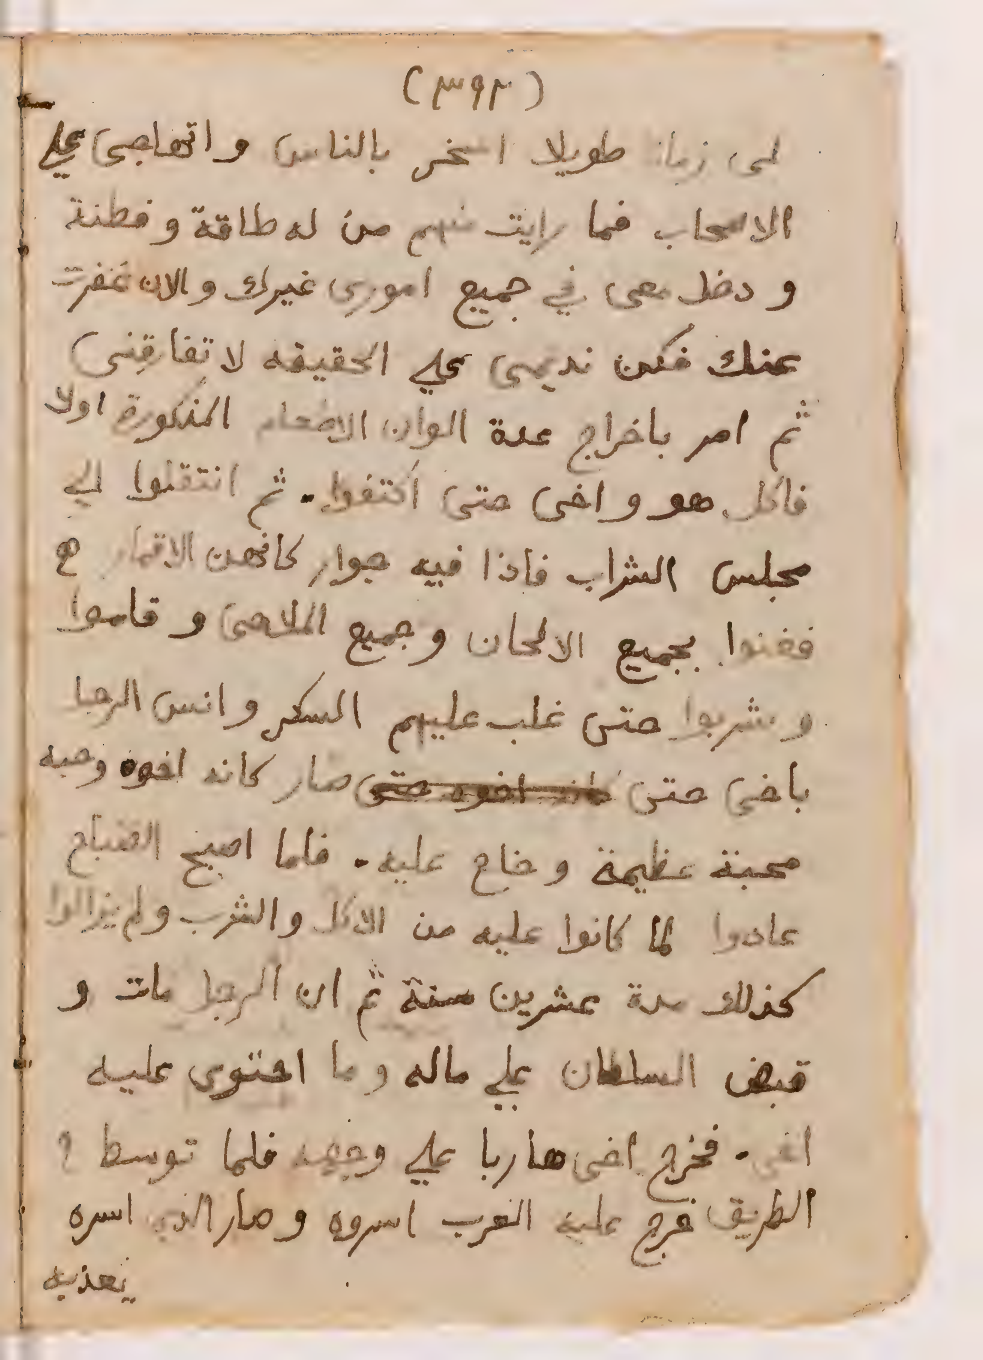 (٣٩٢)
لى زمانا طويلا اسخر بالناس واتهاجى علي
الاصحاب فما رايت منهم من له طاقة وفطنة
ودخل معى في جميع امورى غيرك والان غفرت
عنك فكن نديمى علي الحقيقه لا تفارقنى
ثم امر باخراج عدة الوان الاطعام المذكورة اولا
فاكل هو واخى حتى اكتفوا. ثم انتقلوا الي
مجلس الشراب فاذا فيه جوار كانهن الاقمار
فغنوا بجميع الالحان وجميع الملاهى وقاموا
وشربوا حتى غلب عليهم السكر وانس الرجل
باخى حتى كانه اخوه حتى صار كانه اخوه وحبه
محبة عظيمة وخلع عليه. فلما اصبح الصباح
عادوا لما كانوا عليه من الاكل والشرب ولم يزالوا
كذلك مدة عشرين سنة ثم ان الرجل مات و
قبض السلطان علي ماله وما احتوى عليه
اخى. فخرج اخى هاربا علي وجهه فلما توسط
الطريق خرج عليه العرب اسروه وصار الذى اسره
يعذبه